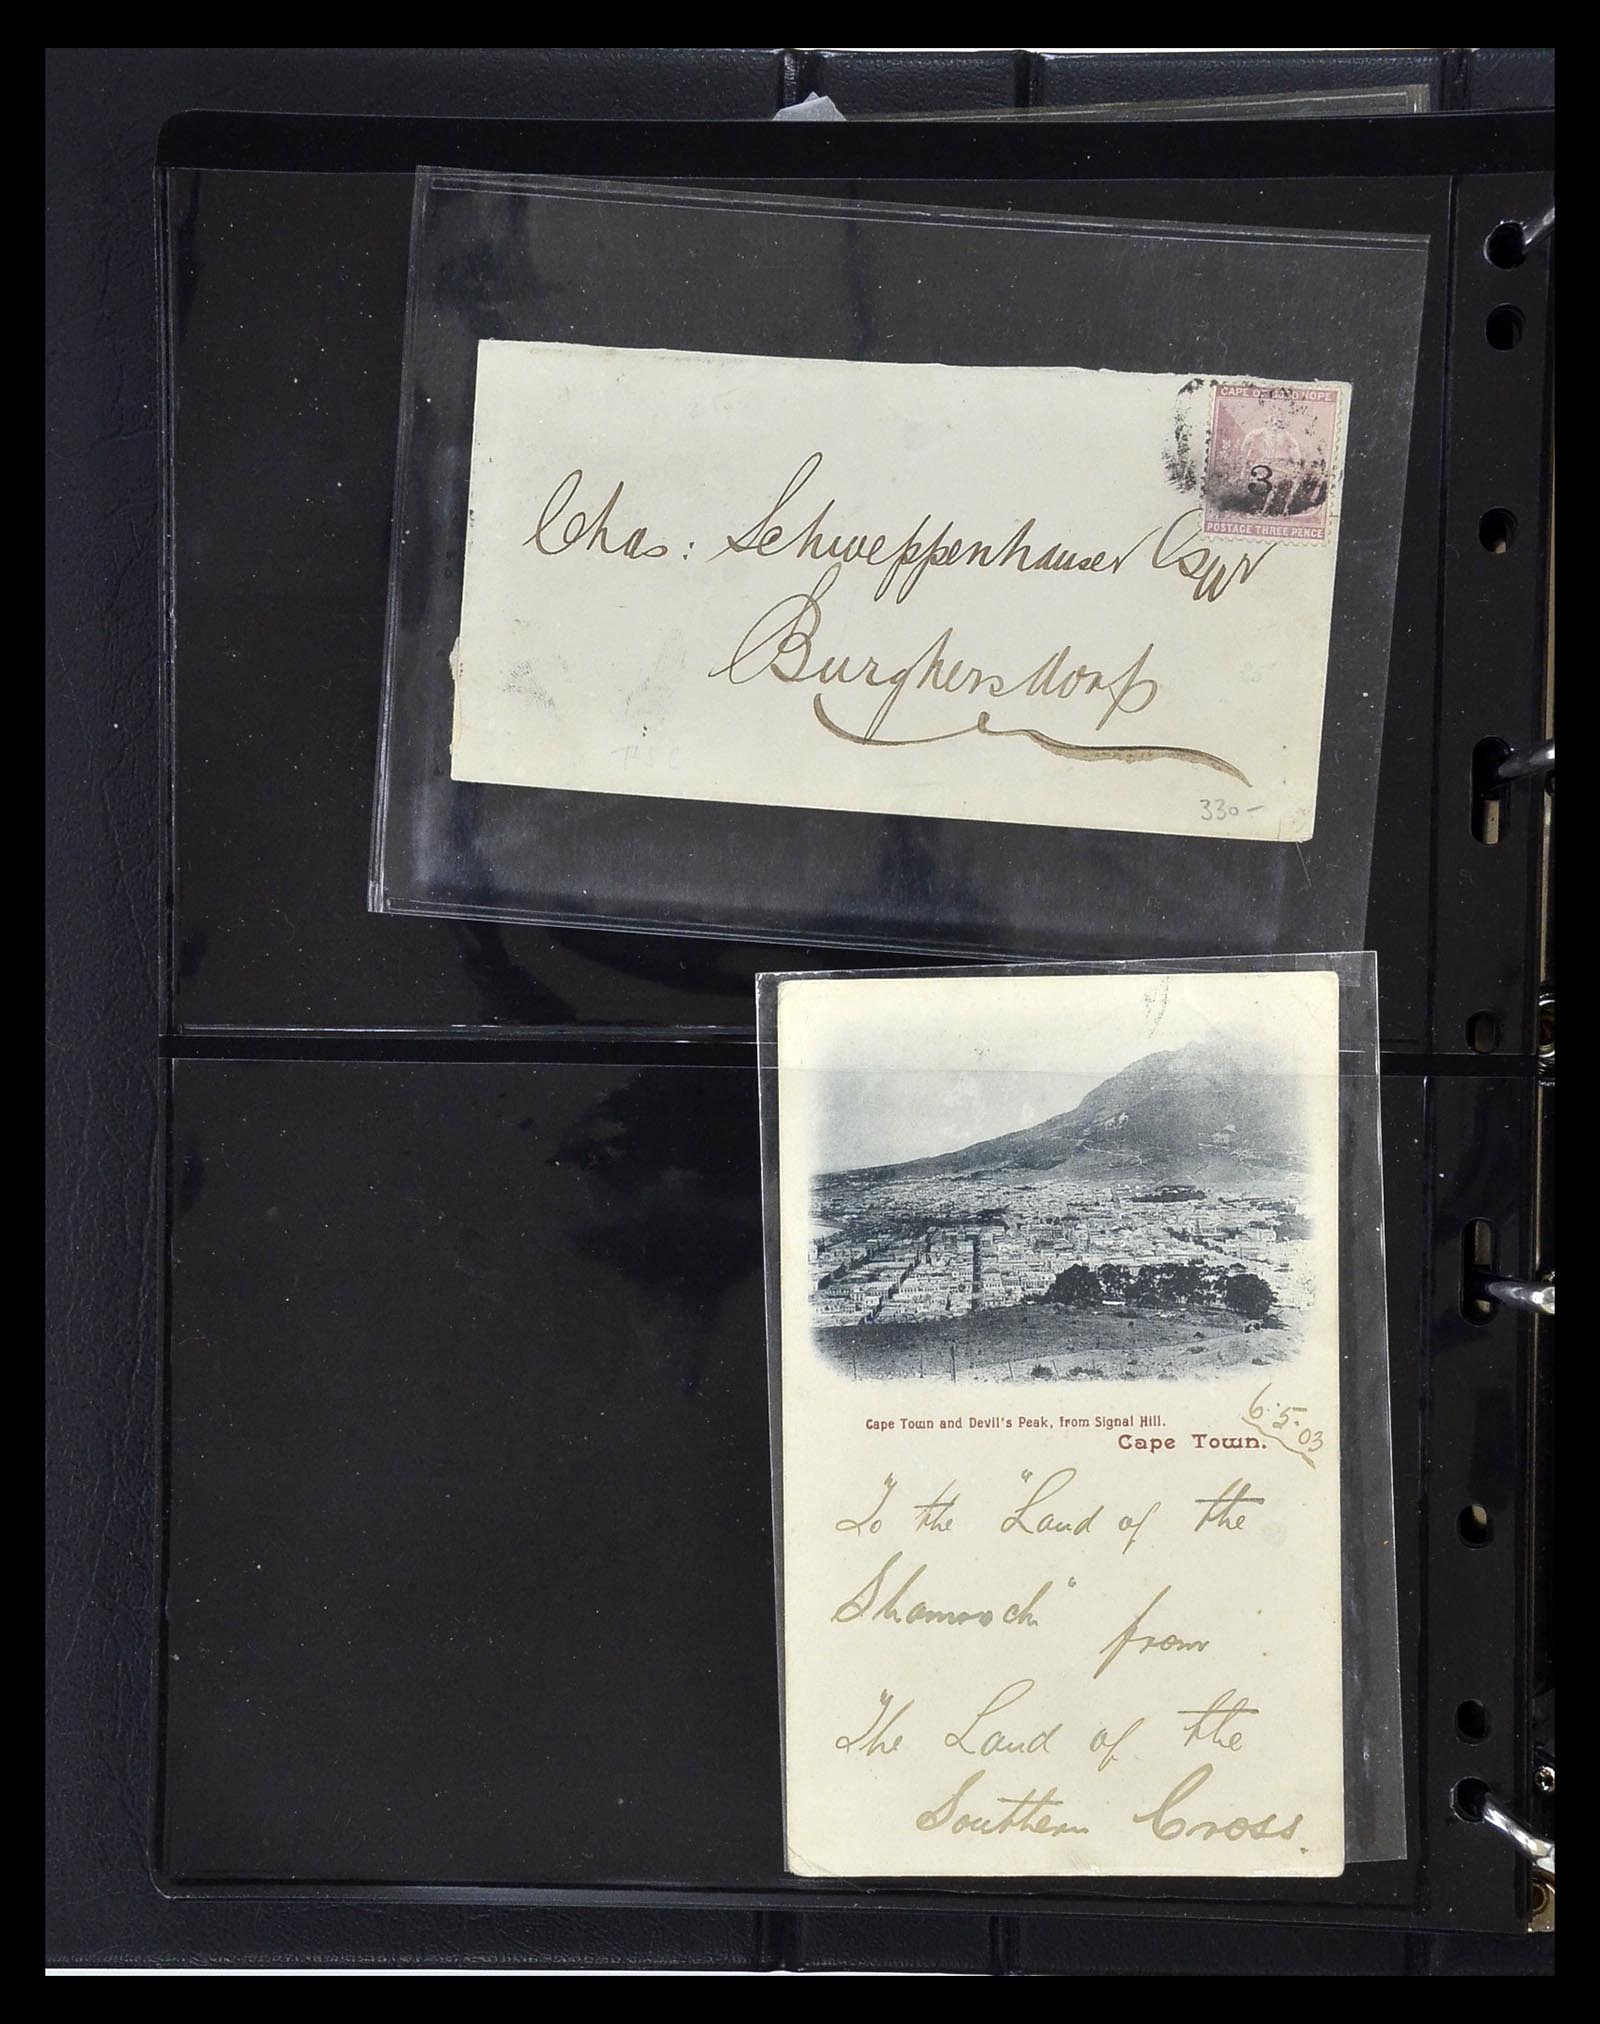 CAPE OF GOOD HOPE
3
POSTAGE THREE PENCE
Chas: Schweppenhauser Esqr
Burghersdorp
330-
Cape Town and Devil's Peak, from Signal Hill.
Cape Town.
6.5.03
"To the "Land of the
Shamrock" from
"The Land of the
Southern Cross.